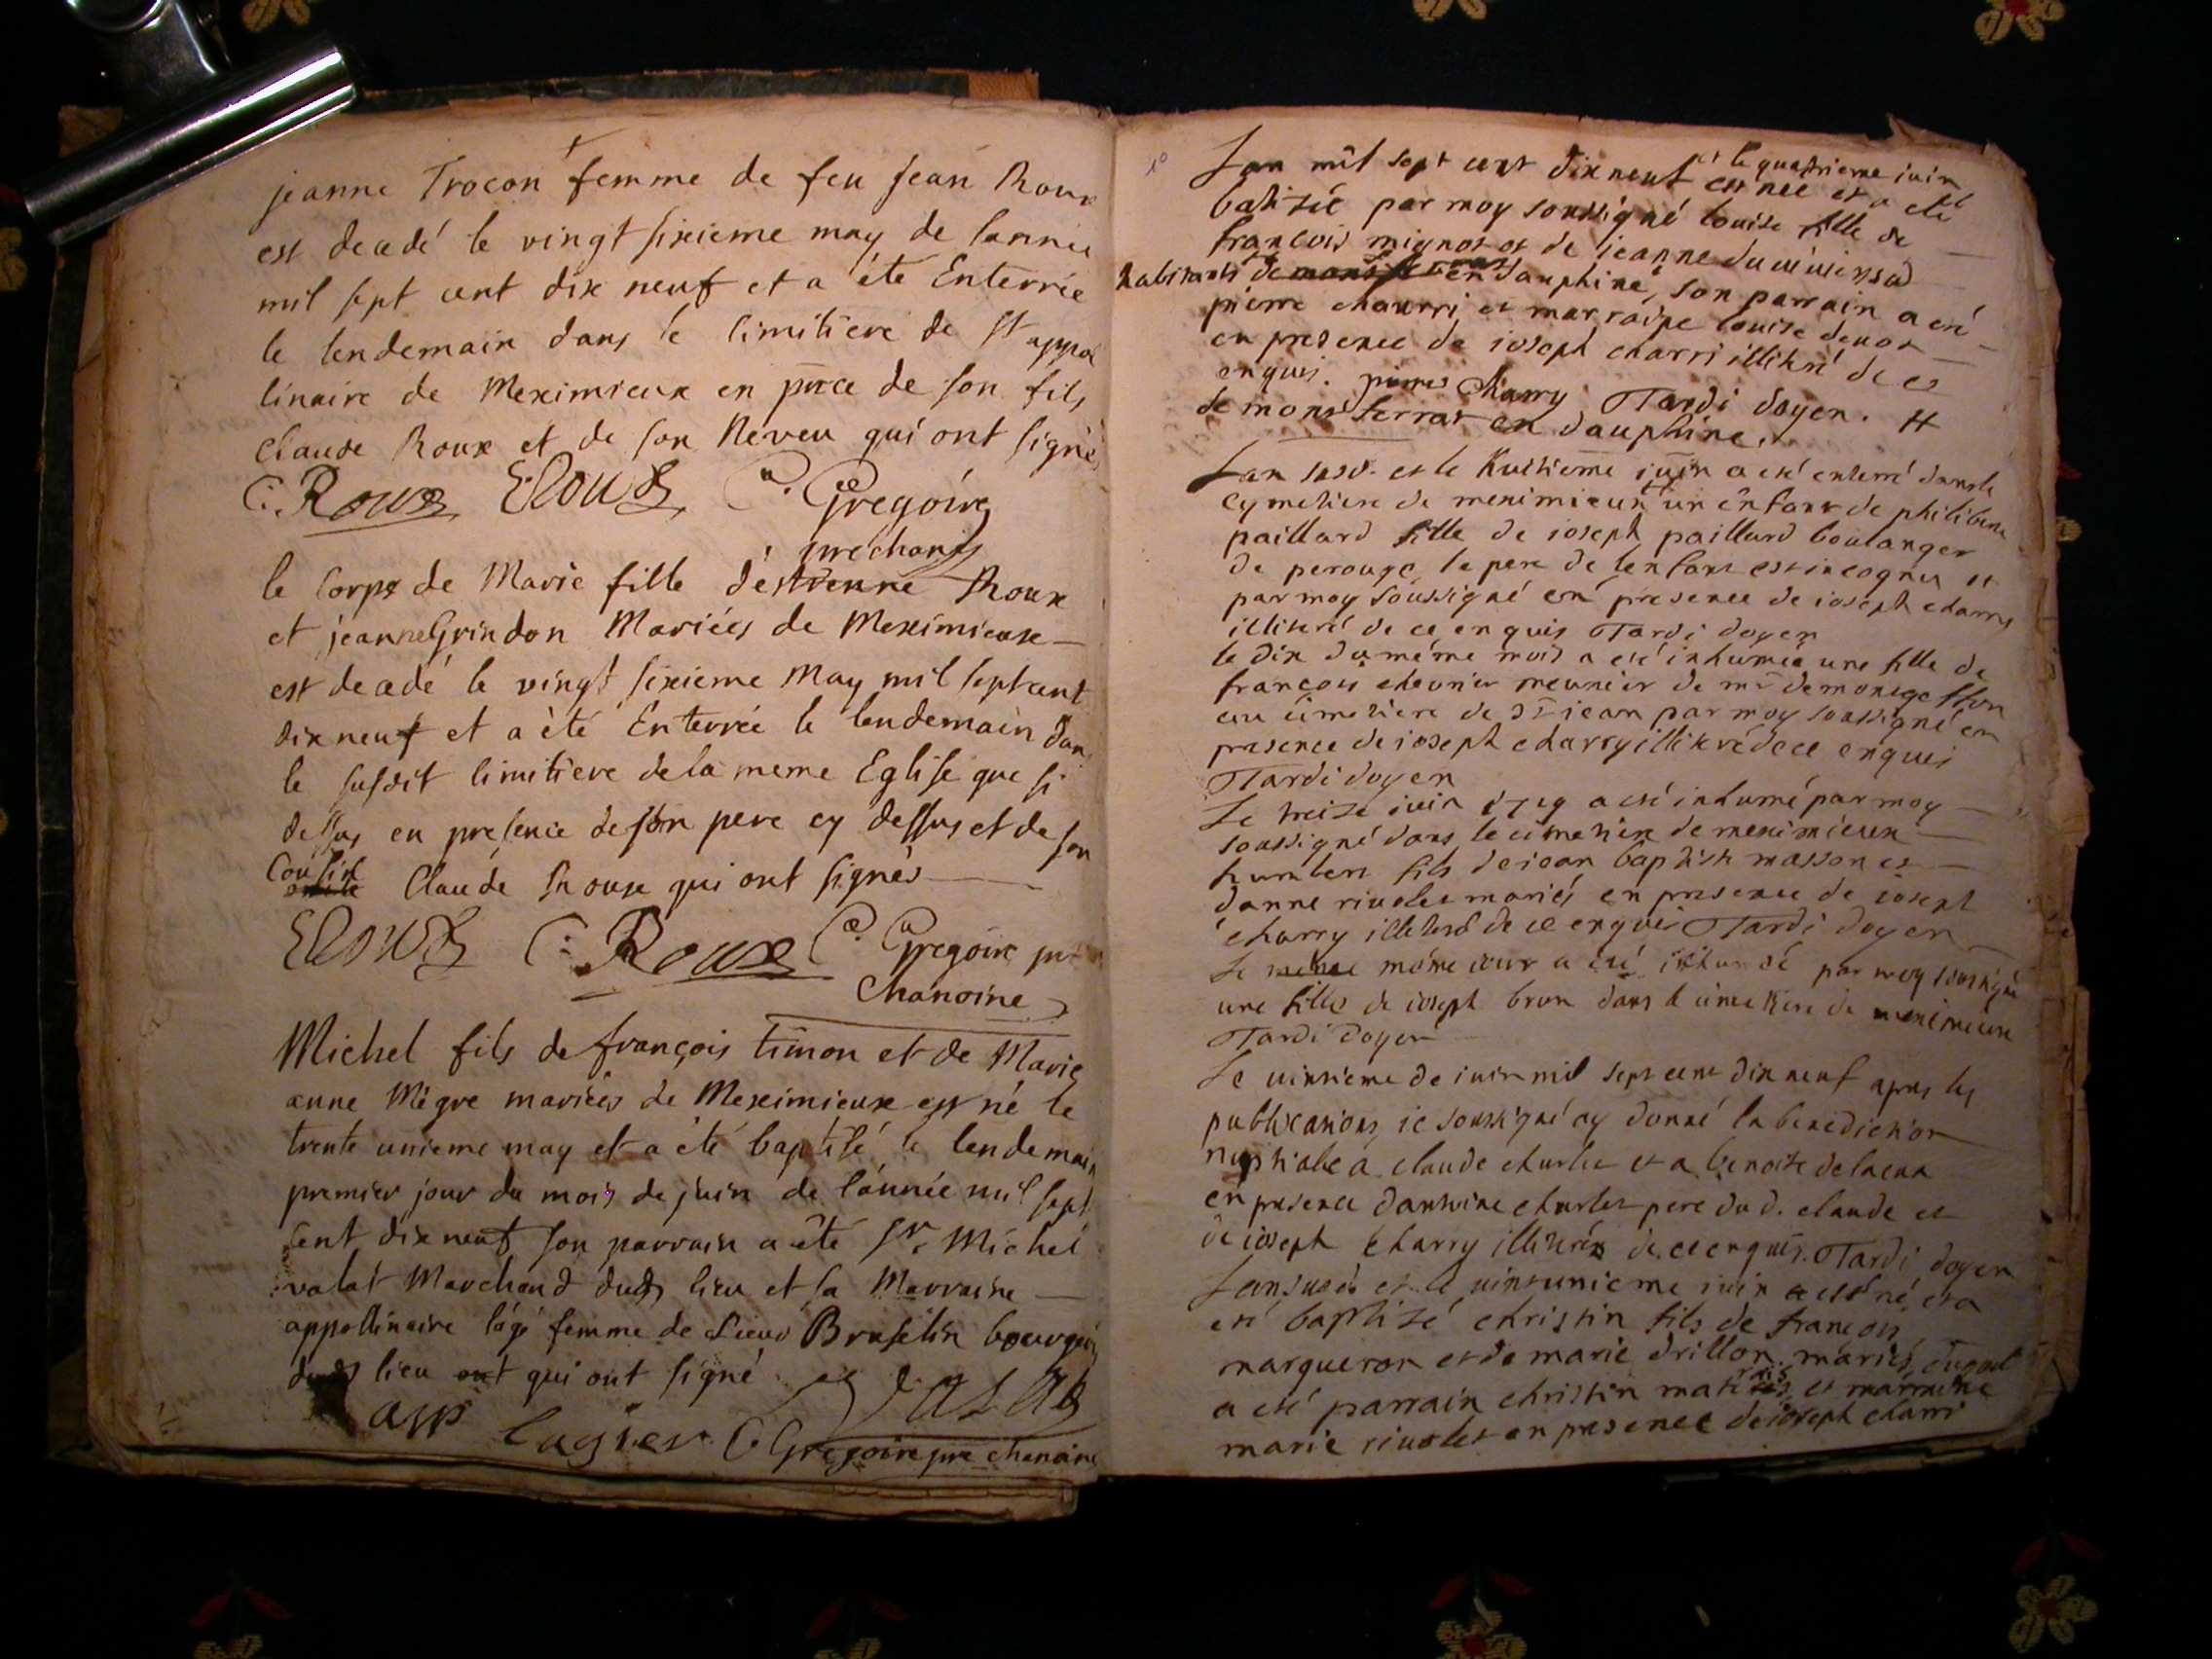 jeanne Trocon femme de feu jean Roux
est decedé le vingt sixieme may de lannée
mil sept cent dix neuf et a été Enterrée
le lendemain dans le cimitiere de St appo
linaire de Meximieux en pnce de son fils
claude Roux et de son Neveu qui ont signés
C: Roux ERoux C. Gregoire
pre chan
le Corps de Marie fille d'estienne Roux
et jeanne Grindon Mariées de Meximieux
est decedé le vingt sixieme May mil sept cent
dixneuf et a été Enterrée le lendemain dan
le susdit cimitiere de la meme Eglise que si
dessus en presence de son pere cy dessus et de son
Cousin Claude Roux qui ont signés
ERoux C: Roux C. Gregoire pr
Chanoine
Michel fils de françois timon et de Marie
anne Mégre mariées de Meximieux est né le
trente unieme may et a été baptisé le lendemain
premier jour du mois de juin de l'année mil sept
cent dix neuf son parrain a été Sr. Michel
valat Marchand dud lieu et sa Marraine
appollinaire femme de Sieur Bruselin bourgeois
dud lieu ont qui ont signé
app lugier C Gregoire pre chanoine
Lan mil sept cent dix neuf et le quatrieme iuin
est nee et a eté
batisée par moy soussigné louise fille de
françois mignot et de ieanne
habitants de en dauphiné, son parrain a eté
pierre charri et marraine louise
en presence de ioseph charri illitéré de ce
enquis. pierre Charry Tardi doyen. H
de mont ferrat en dauphine.
Lan susd. et le huitieme iuin a eté enterré dans le
cymetiere de meximieux un enfant de philiberte
paillard fille de ioseph paillard boulanger
de perouge le pere de lenfant est incognu et
par moy soussigné en presence de ioseph charry
illiteré de ce enquis Tardi doyen
le dix du méme mois a eté inhumée une fille de
françois chevrier meunier de mr de
au cimetiere de St iean par moy soussigné en
presence de ioseph charry illiteré de ce enquis
Tardi doyen
Le treize iuin 1719 a eté inhumé par moy
soussigné dans le cimetiere de meximieux
humbert fils de iean baptiste masson et
danne riuolet mariés en presence de ioseph
charry illiteré de ce enquis Tardi doyen
Le méme iour a eté inhumé par moy soussigné
une fille de ioseph brun dans le cimetiere de meximieux
Tardi doyen
Le vintieme de iuin mil sept cent dix neuf apres les
publications ie soussigné ay donné la benediction
nuptiale a claude charlet et a benoite
en presence dantoine charlet pere du d. claude et
de ioseph charry illiterés de ce enquis. Tardi doyen
Lan susd et le vintunieme iuin est né et a
eté baptizé christin fils de françois
margueron et de marie drillon mariés duquel
a eté parrain christin et marraine
marie riuolet en presence de ioseph charri